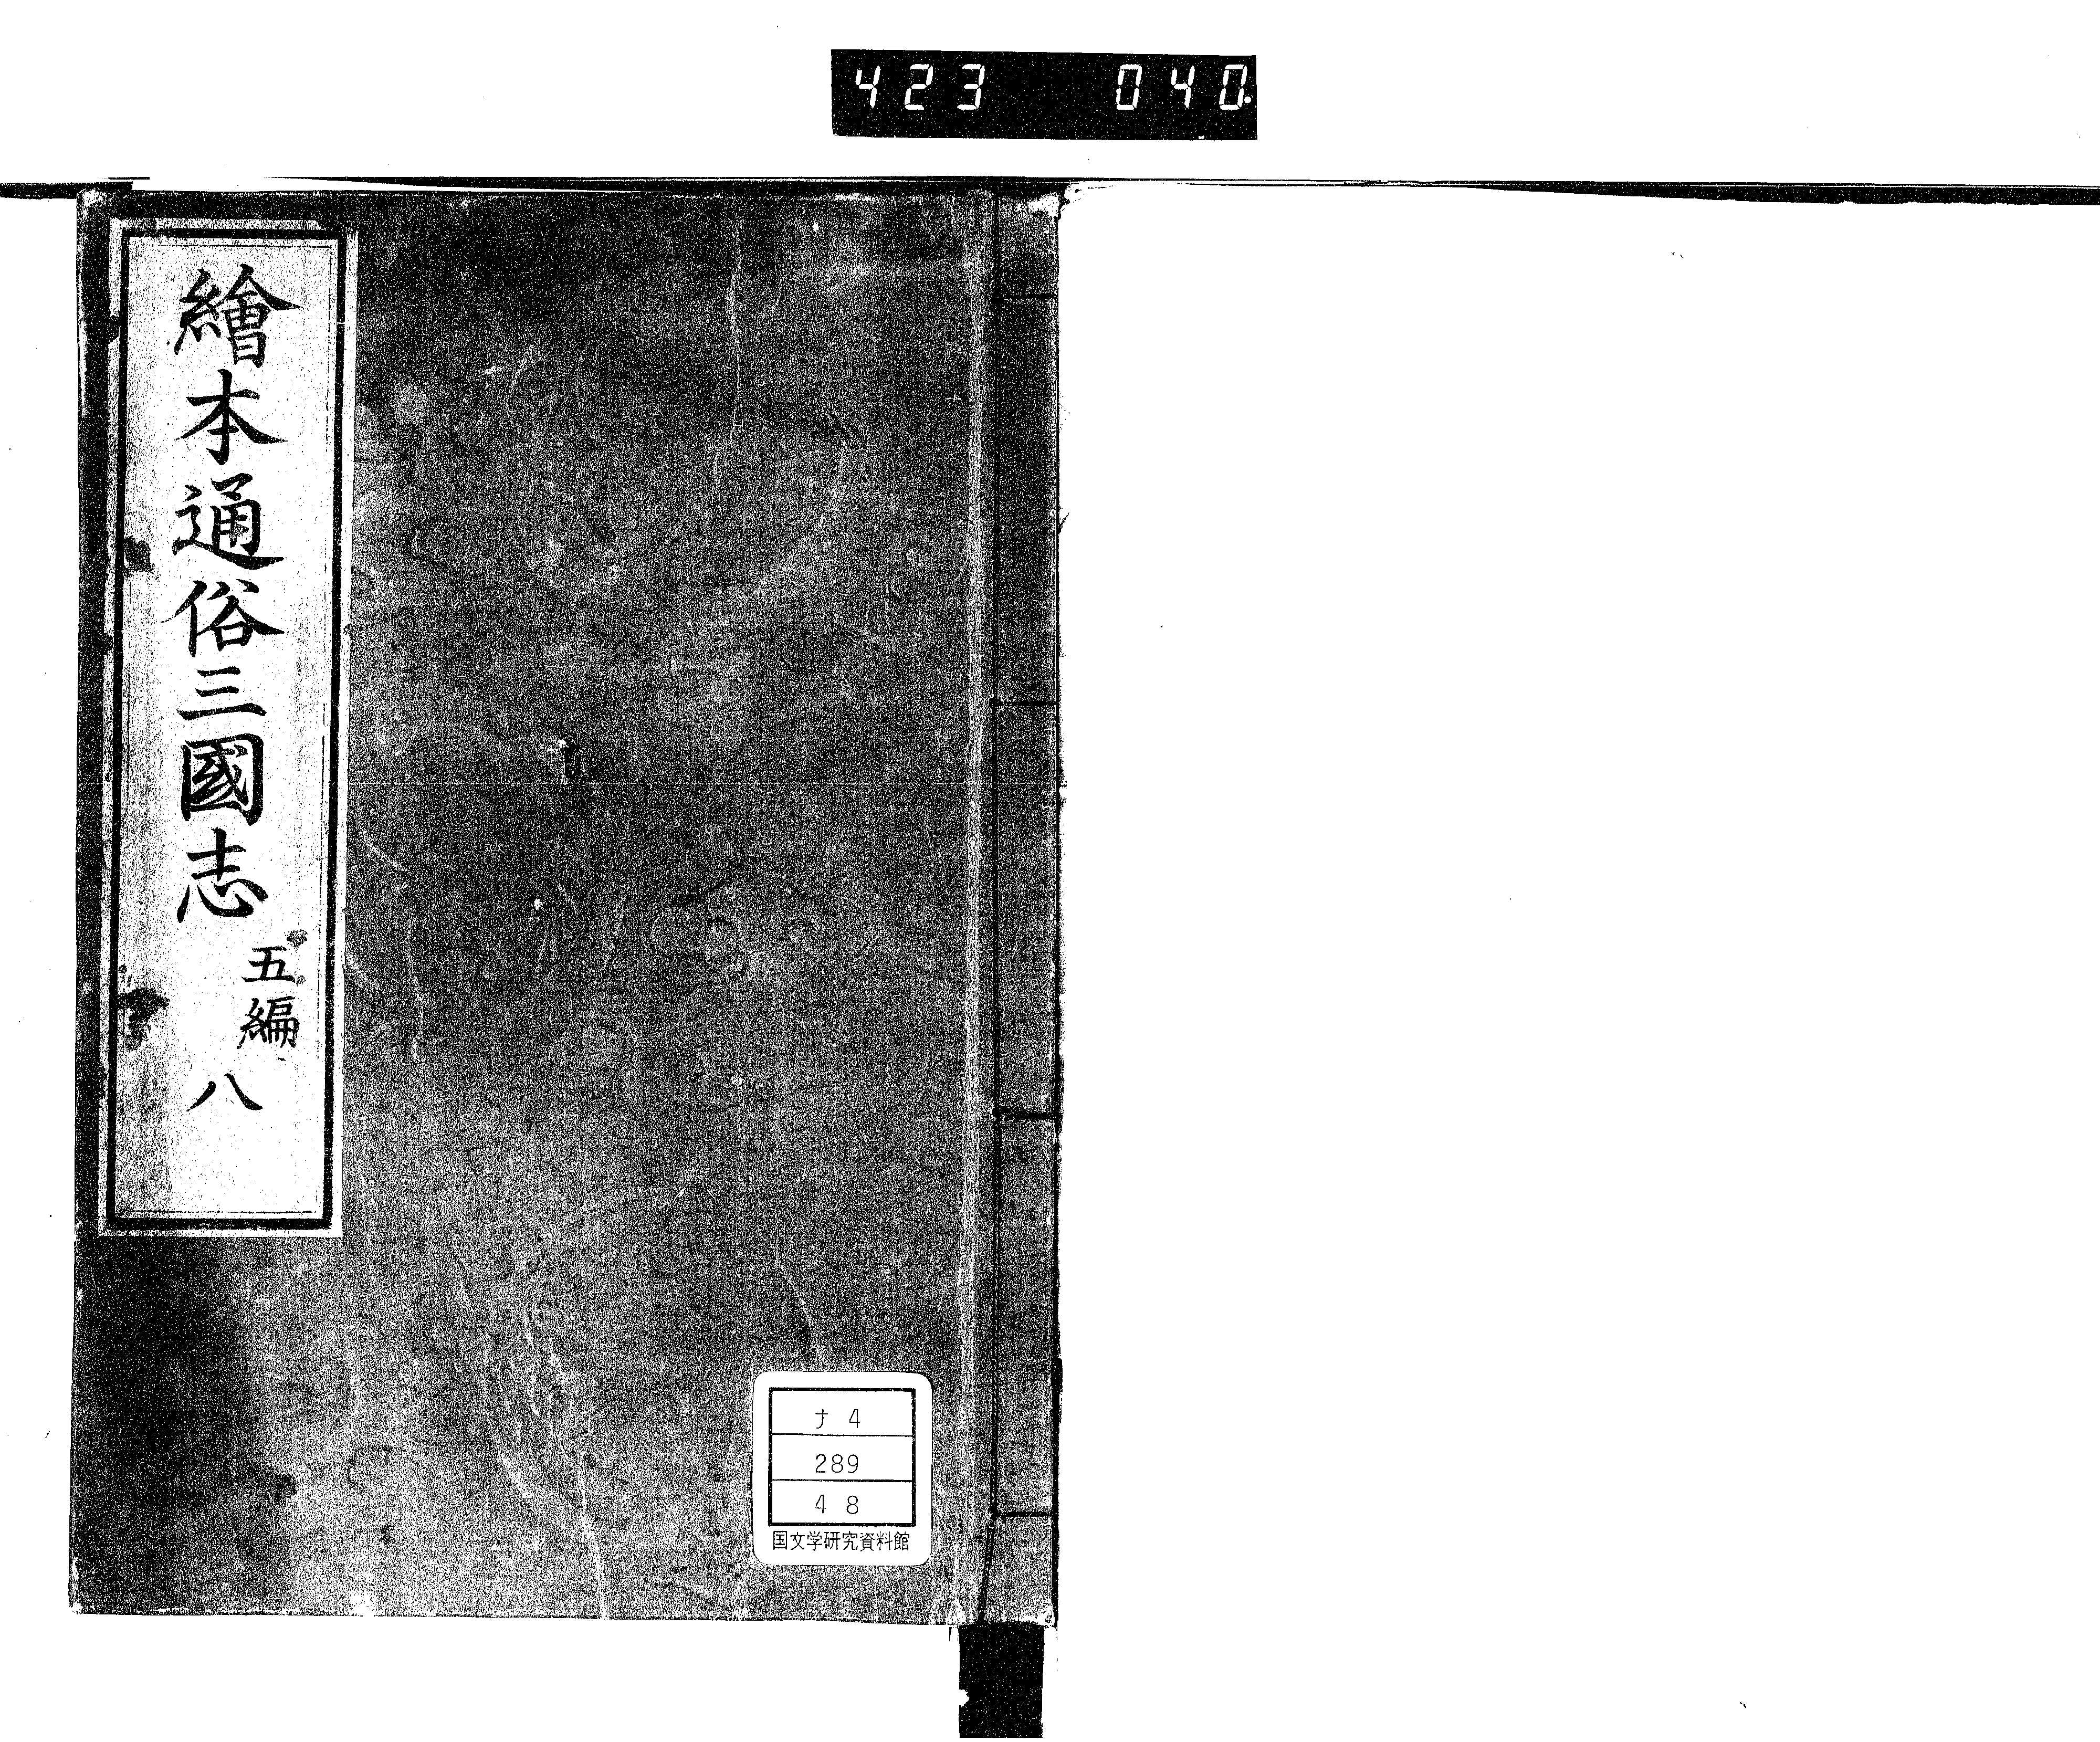 423 040.
繪本通俗三國志
五編
八
ナ 4
289
4 8
国文学研究資料館